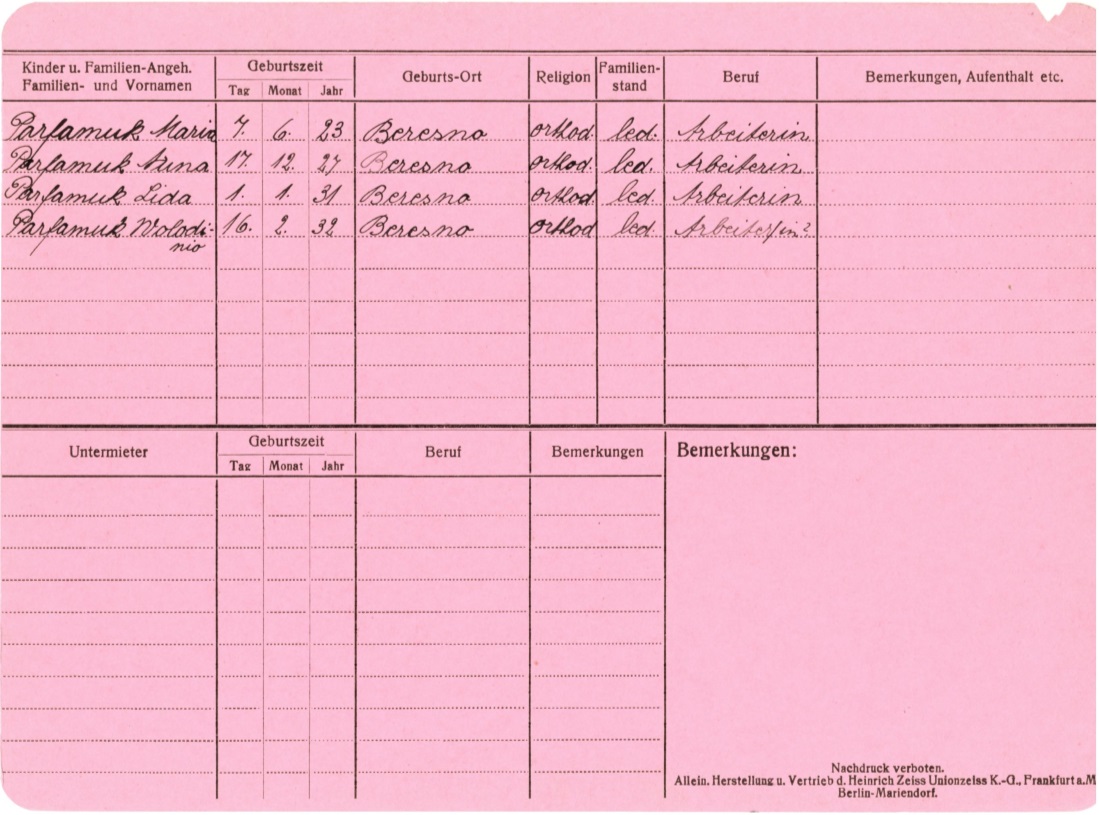 Kinder u. Familien-Angeh. Familien- und Vornamen Geburtszeit Tag Monat Jahr Geburts-Ort Religion Familien-stand Beruf Bemerkungen, Aufenthalt etc.
Parfamuk Maria 7. 6. 23 Beresno orthod. led. Arbeiterin
Parfamuk Anna 17. 12. 27 Beresno orthod. led. Arbeiterin
Parfamuk Lida 1. 1. 31 Beresno orthod led. Arbeiterin
Parfamuk Wolodi- 16. 2. 32 Beresno orthod led. Arbeiter/in?
nio
Untermieter Geburtszeit Tag Monat Jahr Beruf Bemerkungen Bemerkungen:
Nachdruck verboten.
Allein. Herstellung u. Vertrieb d. Heinrich Zeiss Unionzeiss K.-G., Frankfurt a.M
Berlin-Mariendorf.